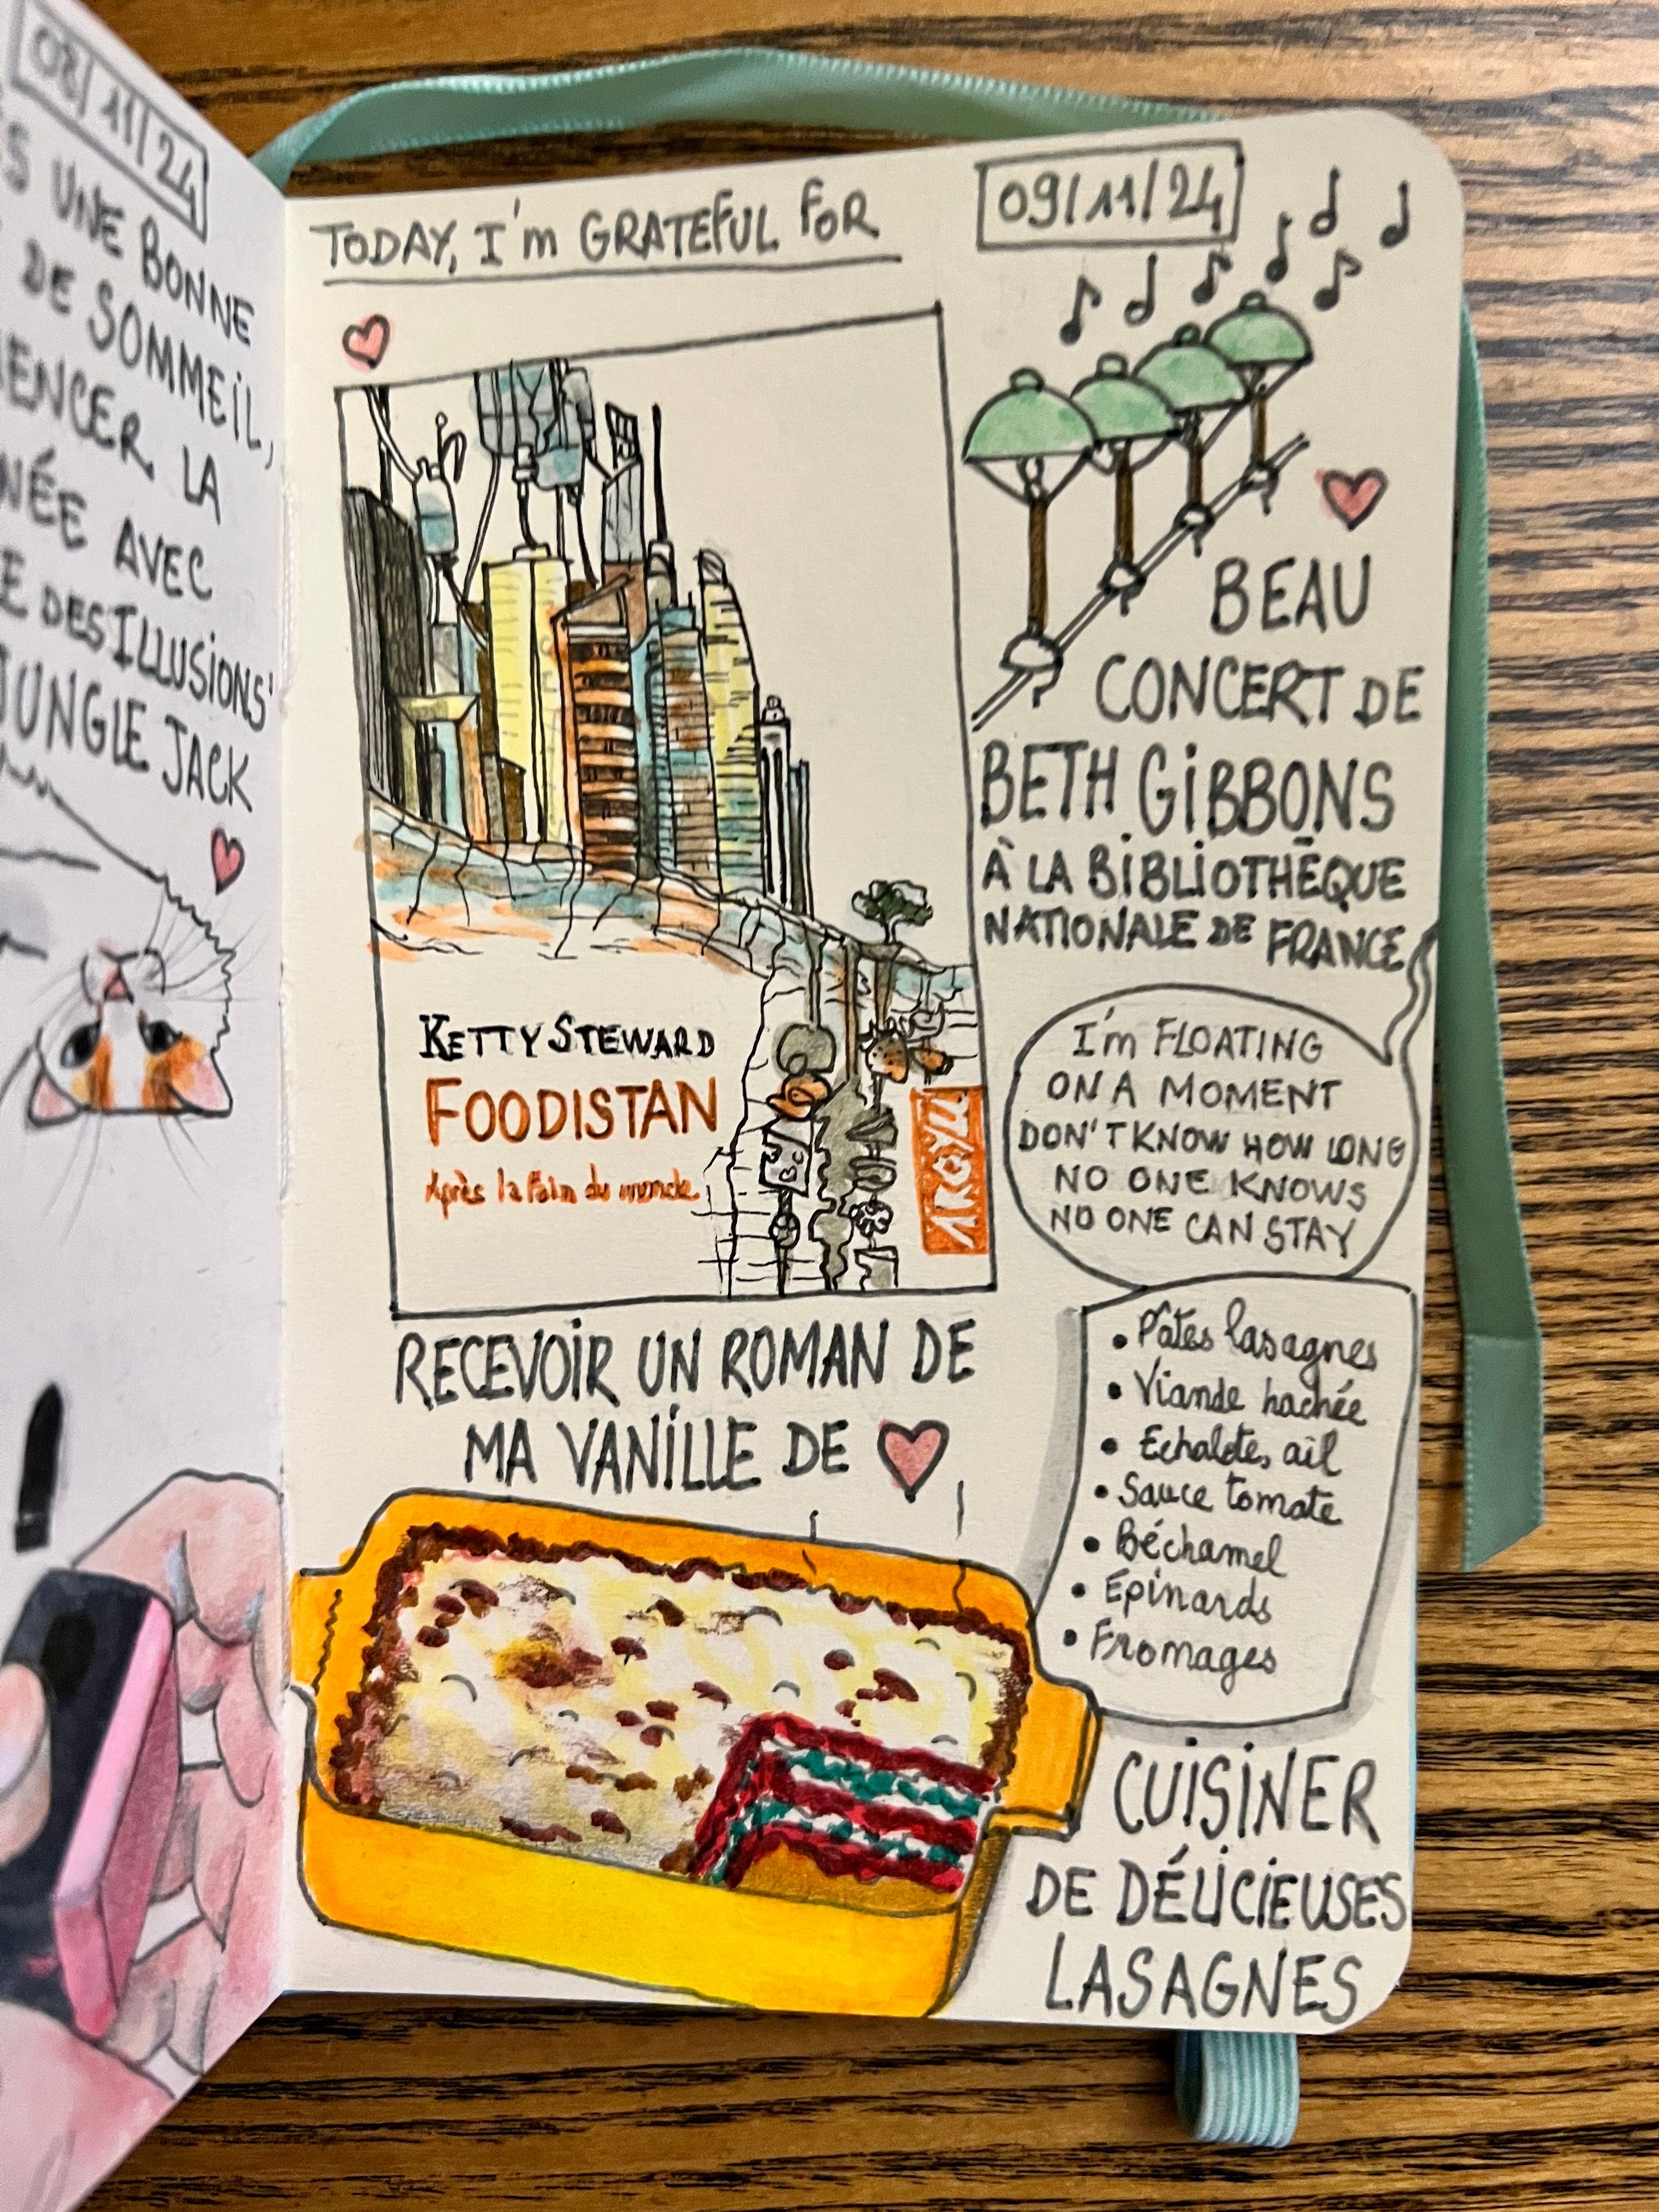 08/11/24
UNE BONNE
DE SOMMEIL,
LA
AVEC
DES ILLUSIONS'
JUNGLE JACK
TODAY, I'm GRATEFUL FOR
09/11/24
KETTY STEWARD
FOODISTAN
Après la faim du monde
RECEVOIR UN ROMAN DE
MA VANILLE DE
BEAU
CONCERT DE
BETH GIBBONS
À LA BIBLIOTHÈQUE
NATIONALE DE FRANCE
I'm FLOATING
ON A MOMENT
DON'T KNOW HOW LONG
NO ONE KNOWS
NO ONE CAN STAY
• Pâtes lasagnes
• Viande hachée
• Echalotes, ail
• Sauce tomate
• Béchamel
• Épinards
• Fromages
CUISINER
DE DÉLICIEUSES
LASAGNES